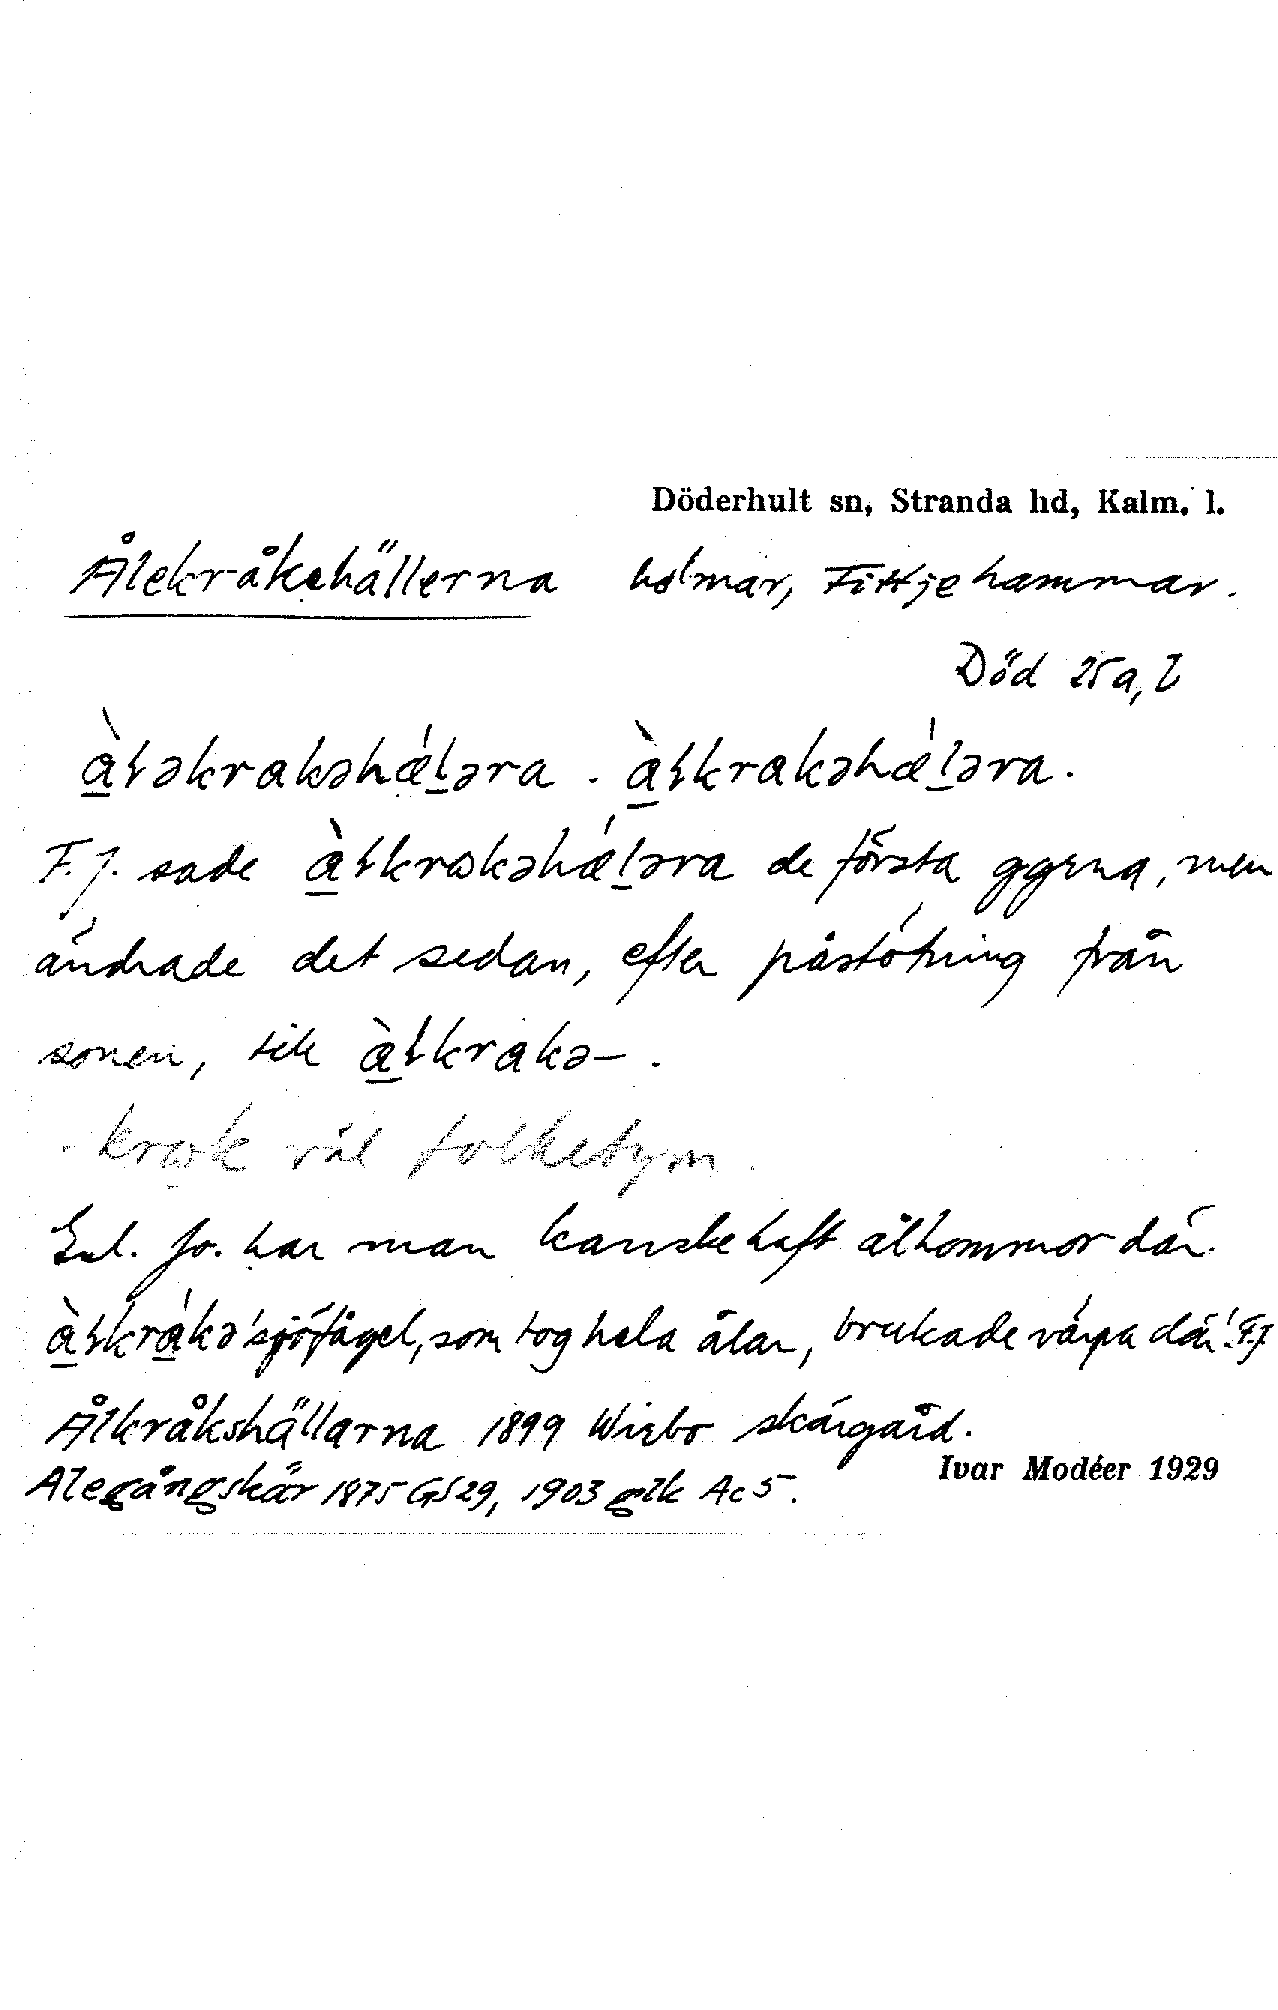 Döderhult sn, Stranda hd, Kalm. l.
Ålekråkehällerna holmar, Fittjehammar.
Död 25 a, b
à̲ƚəkrakəhǽl̲əra . à̲ƚkrakəhǽl̲əra.
F.J. sade à̲ƚkrækəhǽl̲əra de första ggrna, men
ändrade det sedan, efter påstötning från
sonen, till à̲ƚkrakə- .
-kræk väl folketym.
Enl. Jo. har man kanske haft ålhommor där.
à̲ƚkrá̲kə 'sjöfågel, som tog hela ålar, brukade värpa där'. FJ
Ålkråkshällarna 1899 Wirbo skärgård.
Ivar Modéer 1929
Alegångskär 1875 GS29, 1903 glk Ac 5.